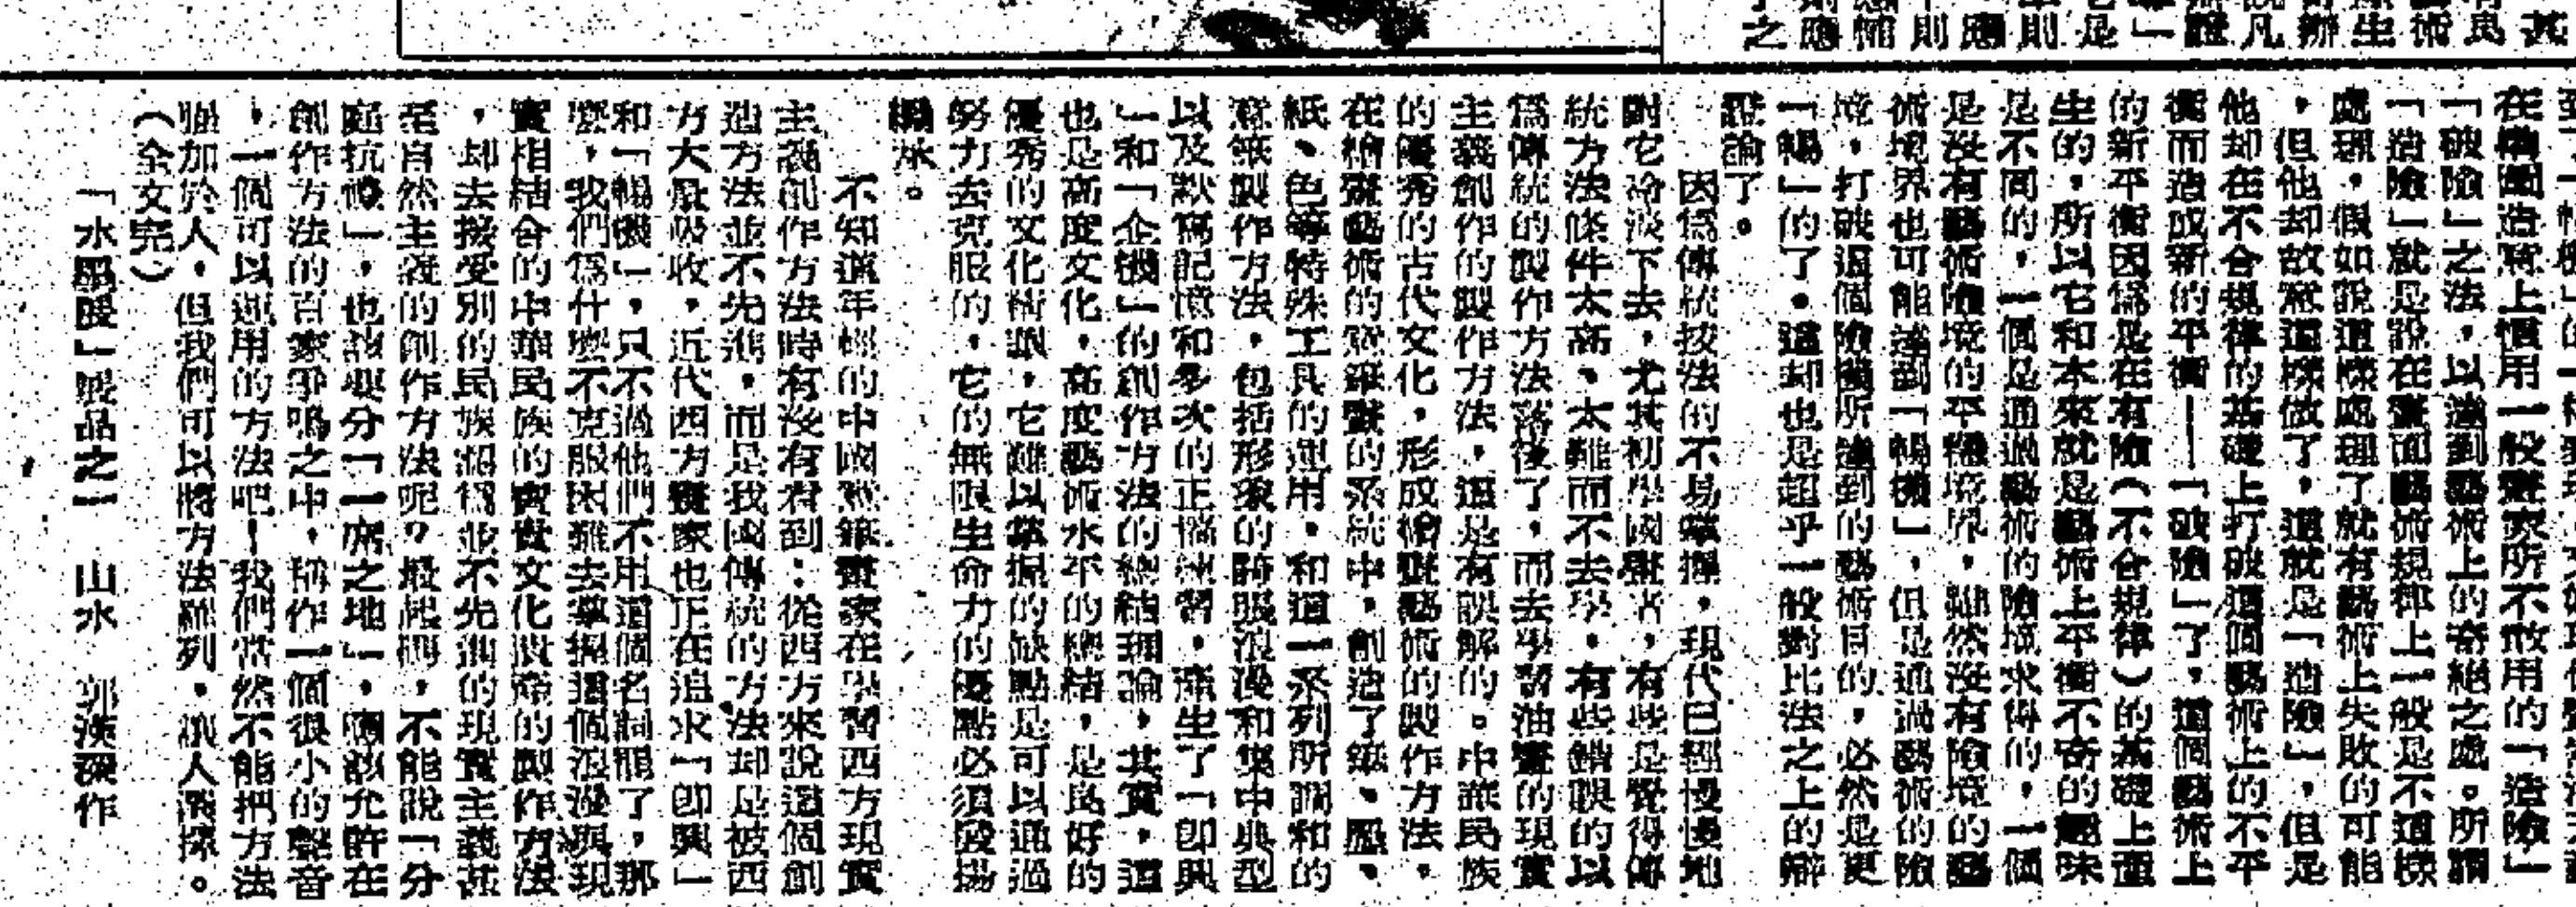 在構圖造寫上慣用一般畫家所不敢用的「造險」
「破險」之法，以達到藝術上的奇絕之處。所謂
「造險」就是說在畫面藝術規律上一般是不這樣
處理，假如說這樣處理了就有藝術上失敗的可能
，但他却故意這樣做了，這就是「造險」，但是
他却在不合規律的基礎上打破這個藝術上的不平
衡而造成新的平衡——「破險」了，這個藝術上
的新平衡因為是在有險（不合規律）的基礎上產
生的，所以它和本來就是藝術上平衡不奇的趣味
是不同的，一個是通過藝術的險境求得的，一個
是沒有藝術險境的平穩境界，雖然沒有險境的藝
術境界也可能達到「暢機」，但是通過藝術的險
境，打破這個險境所達到的藝術目的，必然是更
「暢」的了。這却也是超乎一般對比法之上的辯
證論了。
因為傳統技法的不易掌握，現代已經慢慢地
對它冷淡下去，尤其初學國畫者，有些是覺得傳
統方法條件太高，太難而不去學，有些錯誤的以
為傳統的製作方法落後了，而去學習油畫的現實
主義創作的製作方法，這是有誤解的。中華民族
的優秀的古代文化，形成繪畫藝術的製作方法，
在繪畫藝術的意筆畫的系統中，創造了筆、墨、
紙、色等特殊工具的運用，和這一系列所調和的
意筆製作方法，包括形象的誇張浪漫和集中典型
以及默寫記憶和多次的正稿練習，產生了「即興
」和「企機」的創作方法的總結理論，其實，這
也是高度文化，高度藝術水平的總結，是良好的
優秀的文化積澱，它難以掌握的缺點是可以通過
努力去克服的，它的無限生命力的優點必須發揚
不知道年輕的中國意筆畫家在學習西方現實
主義創作方法時有沒有看到：從西方來說這個創
造方法並不先進，而是我國傳統的方法却是被西
方大量吸收，近代西方畫家也正在追求「即興」
和「暢機」，只不過他們不用這個名詞罷了，那
麼，我們為什麼不克服困難去掌握這個浪漫與現
實相結合的中華民族的寶貴文化遺產的製作方法
，却去接受別的民族認為並不先進的現實主義甚
至自然主義的創作方法呢？最起碼，不能說「分
庭抗禮」，也該要分「一席之地」，應該允許在
創作方法的百家爭鳴之中，稱作一個很小的聲音
，一個可以運用的方法吧！我們當然不能把方法
強加於人，但我們可以將方法羅列，讓人選擇。
（全文完）
「水墨暖」展品之一　山水　郭漢深作